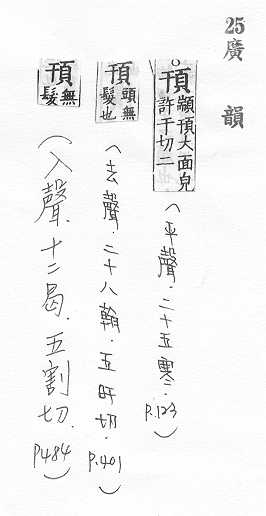 25廣 韻
頇 顢頇大面皃許干切二
(平聲.二十五寒.P.123)
頇 頭無髮也
(去聲.二十八翰.五旰切.P.401)
頇 無髮
(入聲.十二曷.五割切.P484)